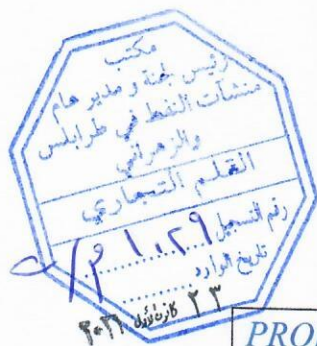 مكتب
رئيس لجنة و مدير عام
منشآت النفط في طرابلس
والزهراني
القلم التجاري
رقم التسجيل ١٠٢٩
تاريخ الوارد
٢٣ كانون الأول ٢٠٢١